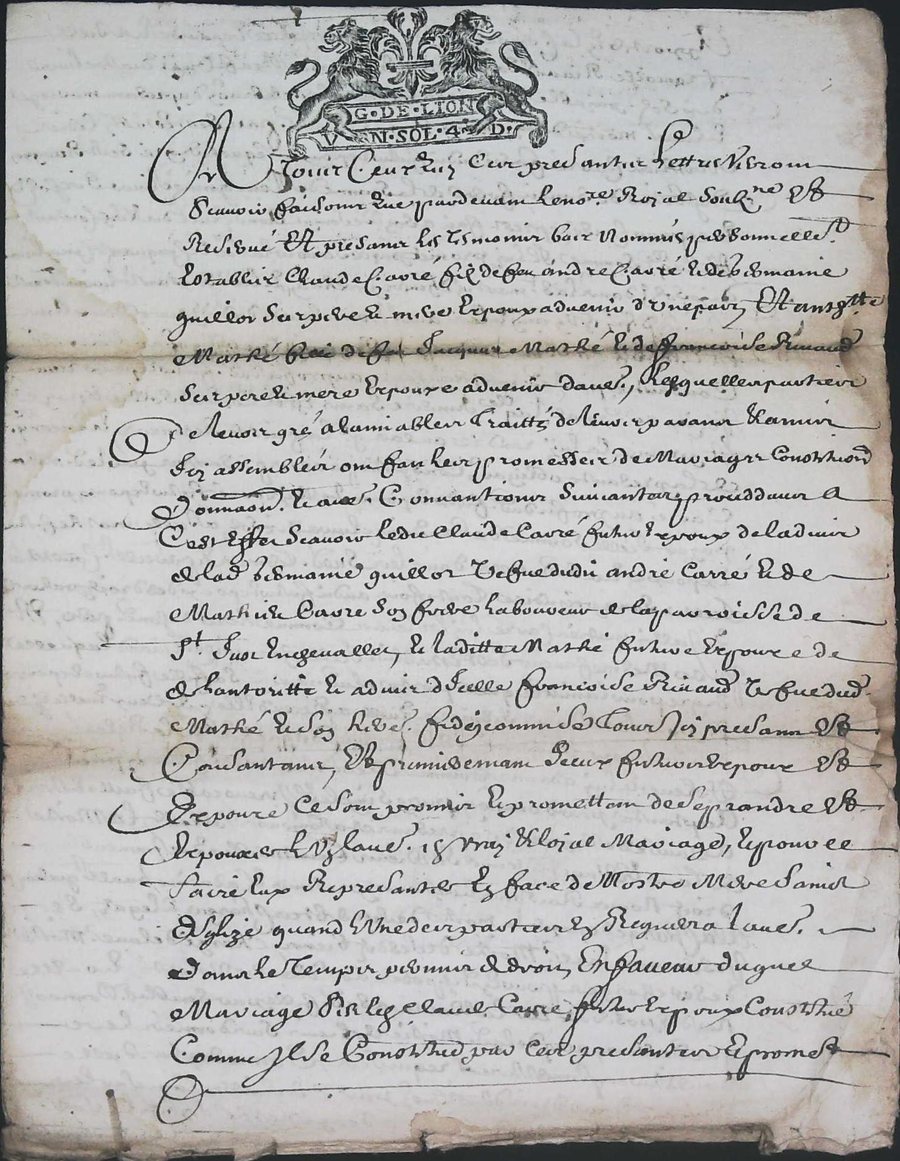 G·DE·LION
VN·SOL·4·D·
A Tous Ceux Qui Ces presantes Lettres Verront
Scavoir faisons que pardevant le nore Royal soubz.ne Et
Et presant les tesmoins bas Nommés personnellet
Establis Claude Carré filz de feu andre Carré & de
guillot Ses pere & mere Espoux advenir d'Une part, Et anthtte
Mathé fille de feu Jacques Mathé & de francoise Rinaud
Ses pere & mere Espouze advenir d'aue., Lesquelles parties
de leurs gré alamiables traittés de leurs parans & amis
Icy assembles ont fait les promesses de Mariage Constitons
Donnaon. & aues. Convantions Suivantes
C'est Scavoir ledit Claude Carré futur Espoux de ladvis
de lad guillot Vefve dudit andre Carré & de
Mathieu Carre Son frere laboureur de la parroisse de
St. Just Enchevallet, & laditte Mathé future Espouze de
& advis d'Icelle francoise Rinaud Vefve dud.
Mathé & Son Tous Icy presans Et
Consantans, Et premierement Iceux futurs Espoux Et
Espouze Ce Sont promis & promettent de Se prandre Et
Espouzer L'Un laue. vray & loyal Mariage, & pour Ce
faire Eux Represanter En face de Nostre Mere Sainct
Eglize quand L'Une des parties En Requerra laue.
Dans le Temps permis de droit, En faveur duquel
Mariage Claude Carre futur Espoux Constitué
Comme Il Se Constitue par Ces presantes